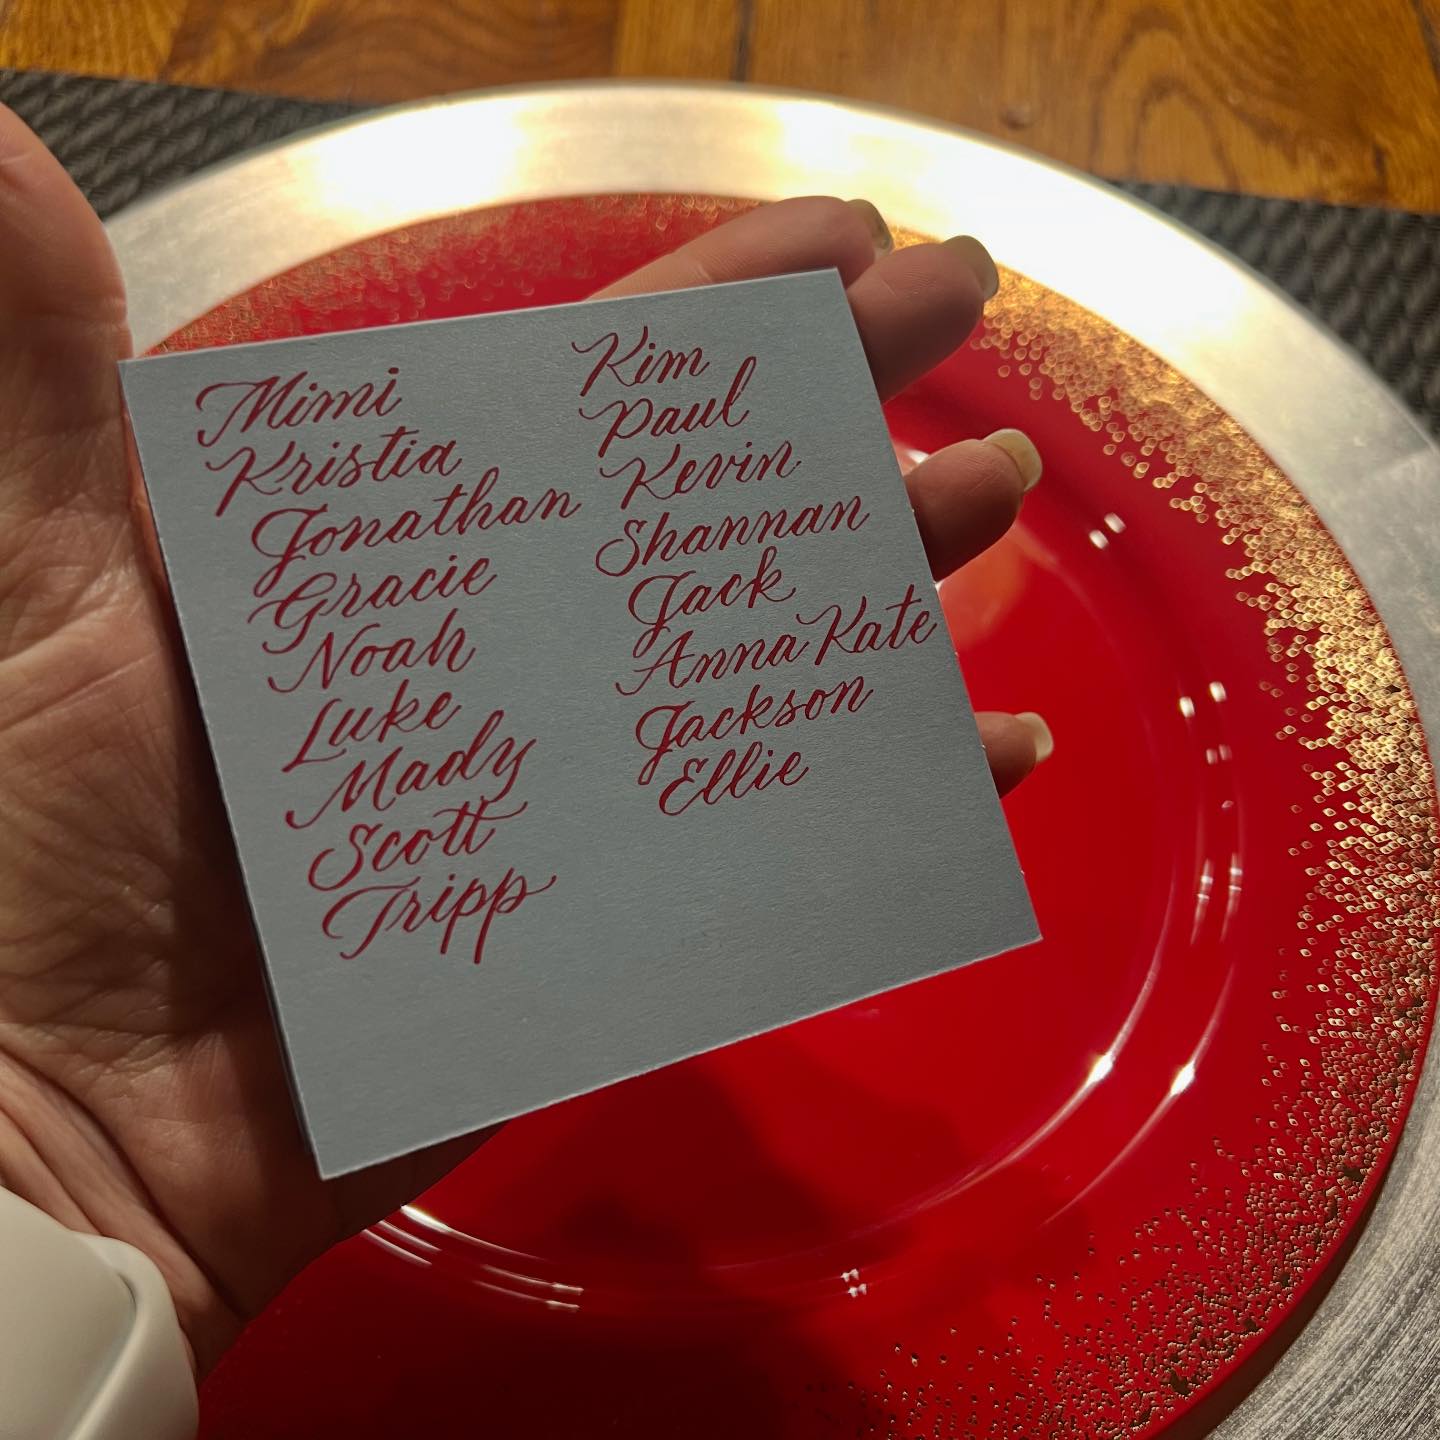 Mimi
Kristia
Jonathan
Gracie
Noah
Luke
Mady
Scott
Tripp
Kim
Paul
Kevin
Shannan
Jack
Anna Kate
Jackson
Ellie